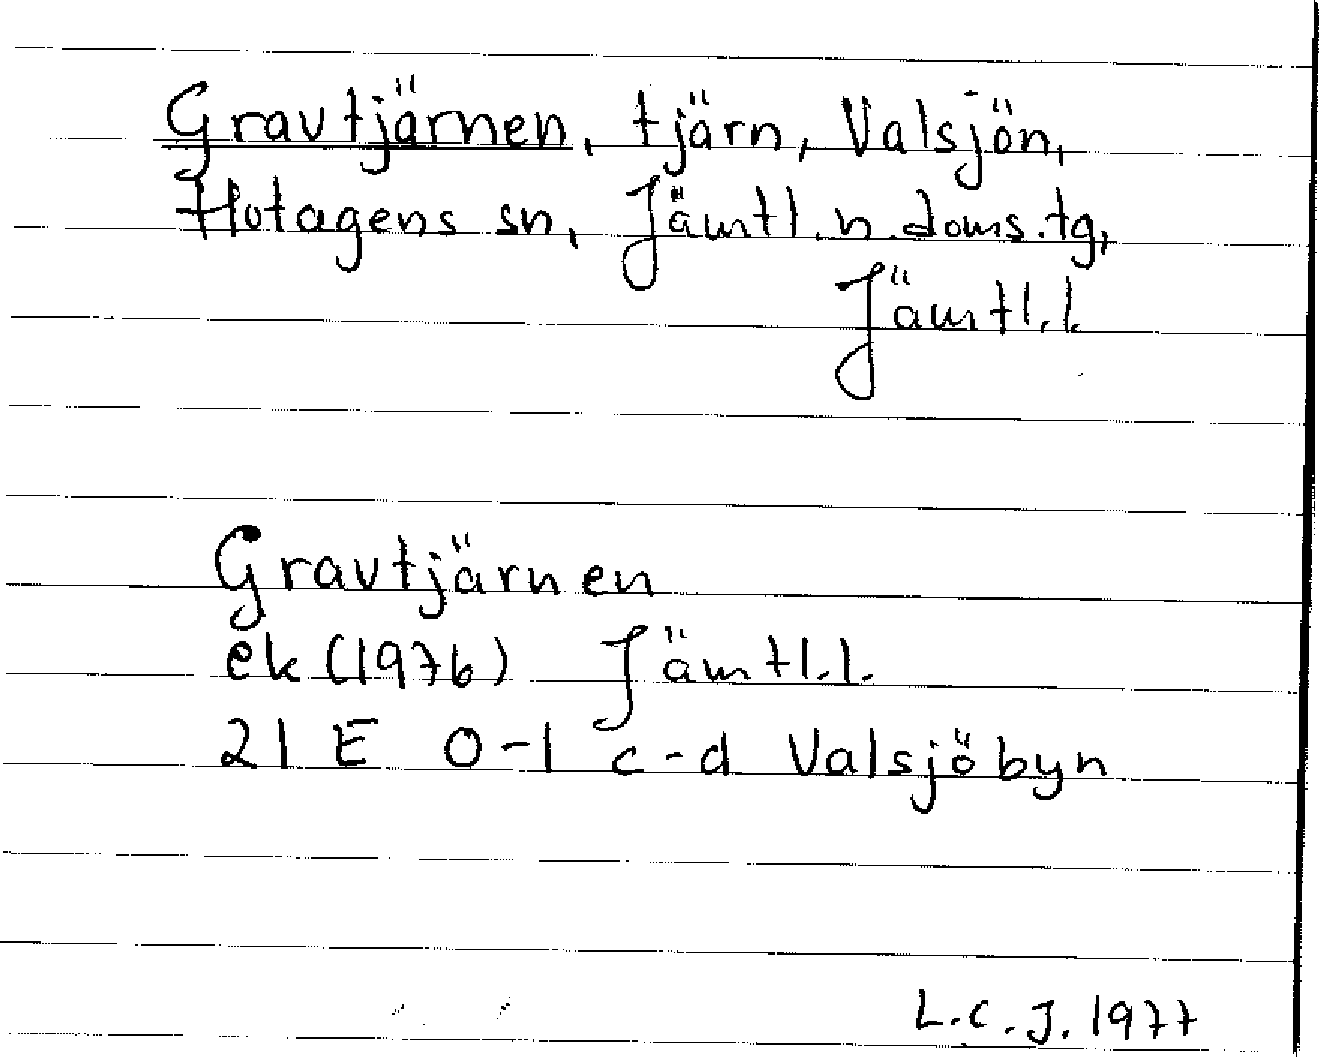 Gravtjärnen, tjärn, Valsjön,
Hotagens sn, Jämtl. n. doms. tg,
Jämtl. l.
Gravtjärnen
ek (1976) Jämtl. l.
21 E 0-1 c-d Valsjöbyn
L.C.J. 1977